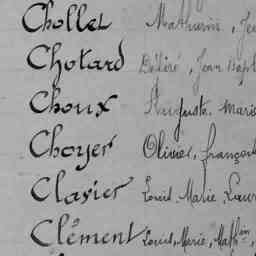 Chollet Mathurin, Je
Chotard Désiré, Jean Bapt
Choux Auguste Marie
Choyer Olivier, françois
Clavier Louis Marie Laur
Clément Louis, Marie, Math